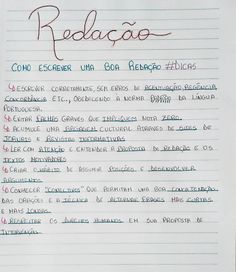 Redação
COMO ESCREVER UMA BOA REDAÇÃO #DICAS
↳ ESCREVER CORRETAMENTE, SEM ERROS DE ACENTUAÇÃO, REGÊNCIA
CONCORDÂNCIA ETC., OBEDECENDO A NORMA PADRÃO DA LÍNGUA
PORTUGUESA.
↳ EVITAR FALHAS GRAVES QUE IMPLIQUEM NOTA ZERO.
↳ ACUMULE UMA BAGAGEM CULTURAL ATRAVÉS DE LIVROS DE
JORNAIS E REVISTAS INFORMATIVAS
↳ LER COM ATENÇÃO E ENTENDER A PROPOSTA DE REDAÇÃO E OS
TEXTOS MOTIVADORES
↳ CRIAR O HÁBITO DE ASSUMIR POSIÇÕES E DESENVOLVER
ARGUMENTOS
↳ CONHECER "CONECTIVOS" QUE PERMITAM UMA BOA CONCATENAÇÃO
DAS ORAÇÕES E A TÉCNICA DE ALTERNAR FRASES MAIS CURTAS
E MAIS LONGAS.
↳ RESPEITAR OS DIREITOS HUMANOS EM SUA PROPOSTA DE
INTERVENÇÃO.